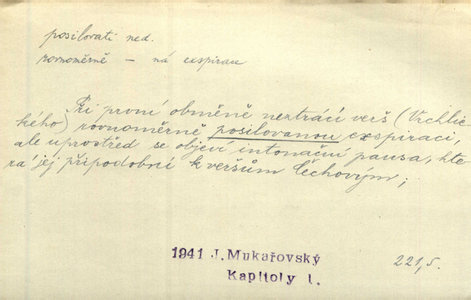 posilovati ned.
rovnoměrně – ná exspirace
Při první obměně neztrácí verš (Vrchlic
kého) rovnoměrně posilovanou exspiraci,
ale uprostřed se objeví intonační pausa, kte
rá jej připodobní k veršům Čechovým;
1941 J. Mukařovský
Kapitoly I.
221,5.